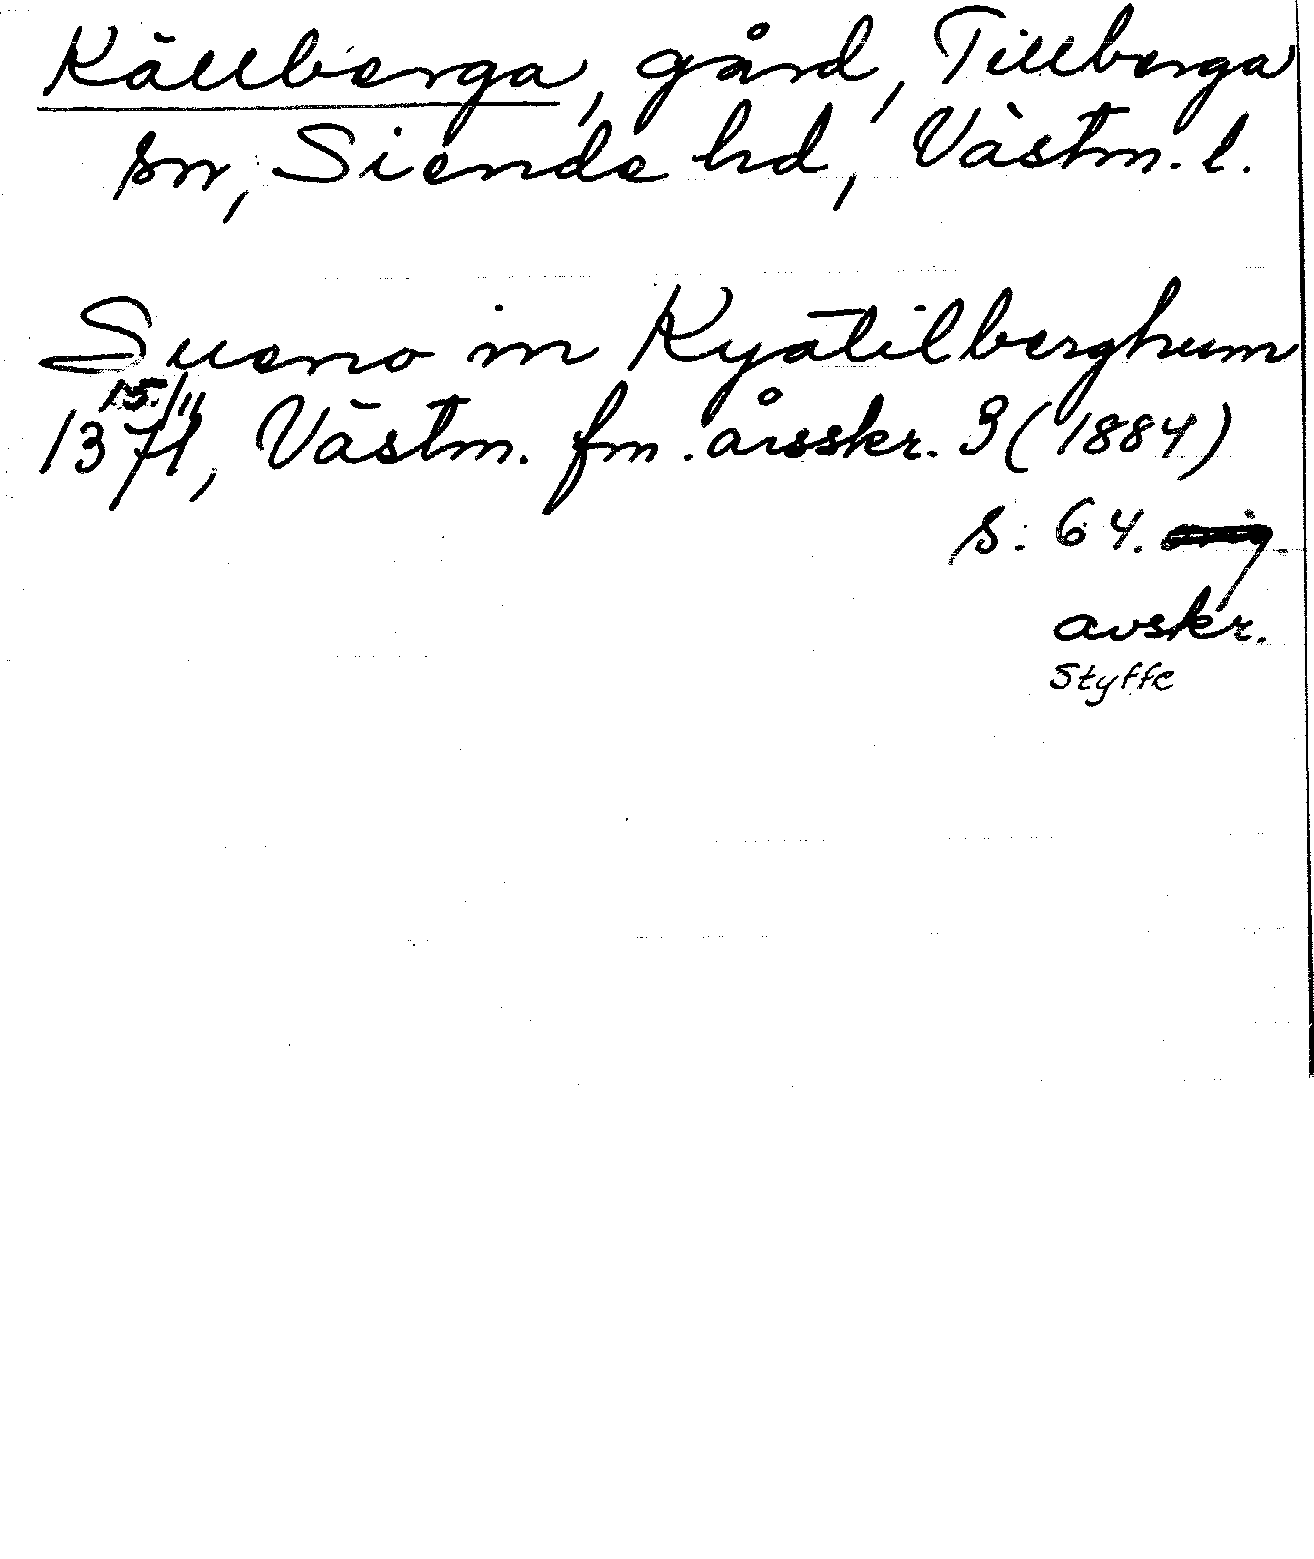 Källberga, gård, Tillberga
sn, Siende hd, Västm. l.
Sueno in Kyätilberghum
15/11
1371, Västm. fm. årsskr. 3 (1884)
s. 64.
avskr.
Styffe